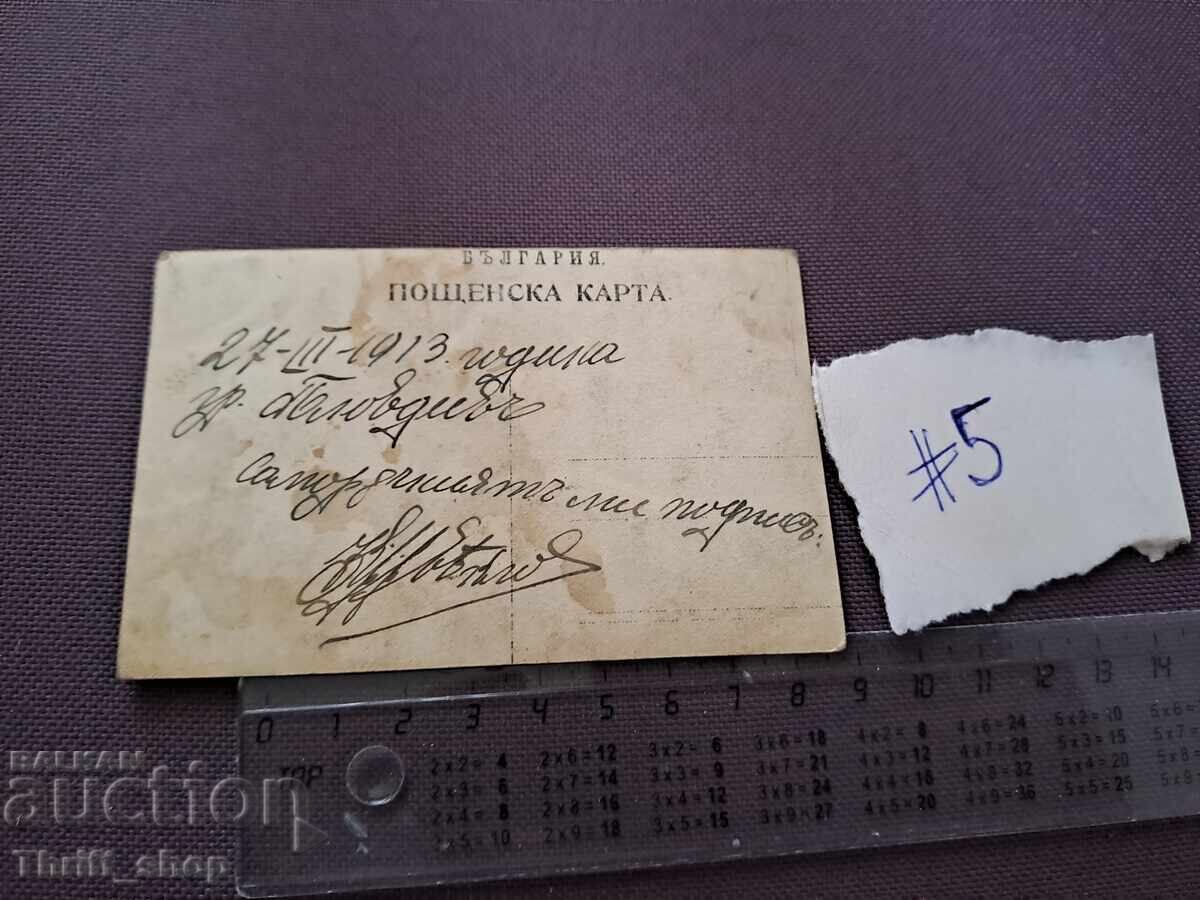 БЪЛГАРИЯ.
ПОЩЕНСКА КАРТА.
27-III-1913 година
гр. Пловдивъ
саморѫчниятъ ми подписъ:
#5
0 1 2 3 4 5 6 7 8 9 10 11 12 13 14
2x2= 4 2x6=12 3x2= 6 3x6=18 4x2= 8 4x6=24 5x2=10 5x6=
2x3= 6 2x7=14 3x3= 9 3x7=21 4x3=12 4x7=28 5x3=15 5x7=
2x4= 8 2x8=16 3x4=12 3x8=24 4x4=16 4x8=32 5x4=20 5x8
2x5=10 2x9=18 3x5=15 3x9=27 4x5=20 4x9=36 5x5=25 5x9
BALKAN
auction
Thriff_shop